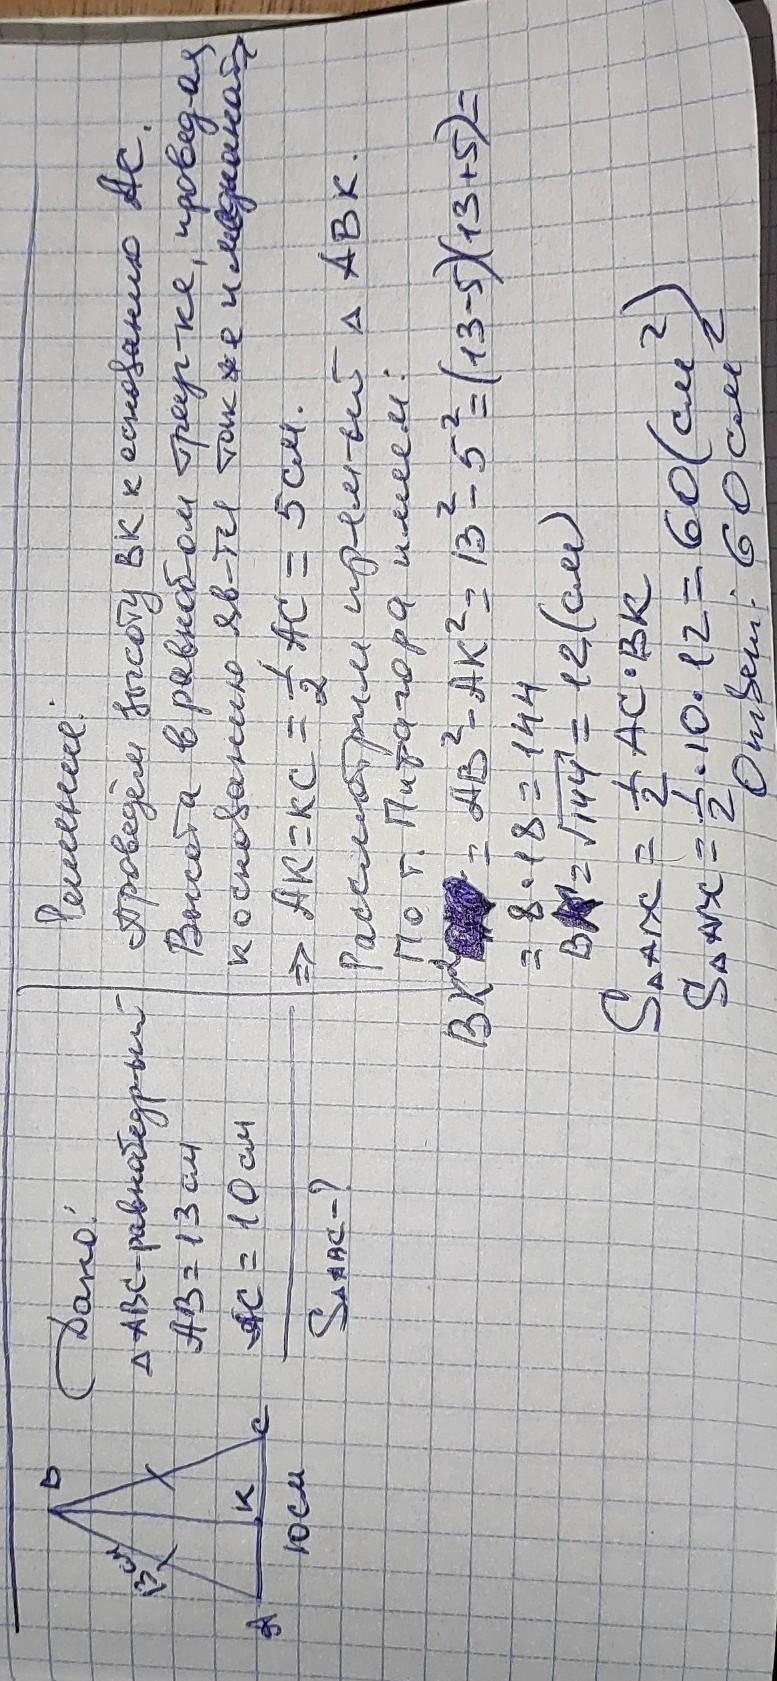 B
13 см
A
K
C
10 см
Дано:
△ ABC-равнобедр-ый
AB = 13 см
AC = 10 см
S△ABC-?
Решение:
Проведём высоту BK к основанию AC.
Высота в равноб-ом треуг-ке, провед-ая
к основанию яв-тся также и медианой
=> AK=KC = 1/2 AC = 5 см.
Рассмотрим прям-ый △ ABK.
По т. Пифагора имеем:
BK² = AB² - AK² = 13² - 5² = (13-5)(13+5)=
= 8·18 = 144
BK = √144 = 12 (см)
S△ABC = 1/2 AC·BK
S△ABC = 1/2 ·10·12 = 60 (см²)
Ответ: 60 см²